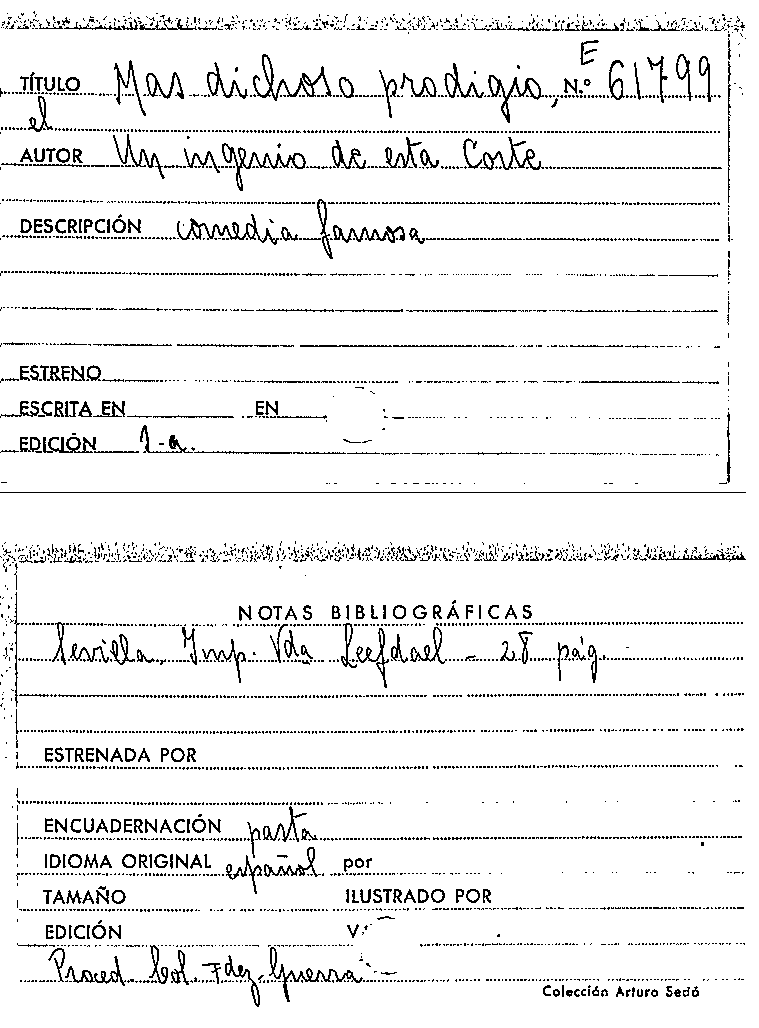 TÍTULO Mas dichoso prodigio, N.º E 61799
el
AUTOR Un ingenio de esta Corte
DESCRIPCIÓN comedia famosa
ESTRENO
ESCRITA EN EN
EDICIÓN 1-a.
NOTAS BIBLIOGRÁFICAS
Sevilla. Imp. Vda Leefdael - 28 pág.
ESTRENADA POR
ENCUADERNACIÓN pasta
IDIOMA ORIGINAL español por
TAMAÑO ILUSTRADO POR
EDICIÓN
Proced. Col. Fdez-Guerra
Colección Arturo Sedó